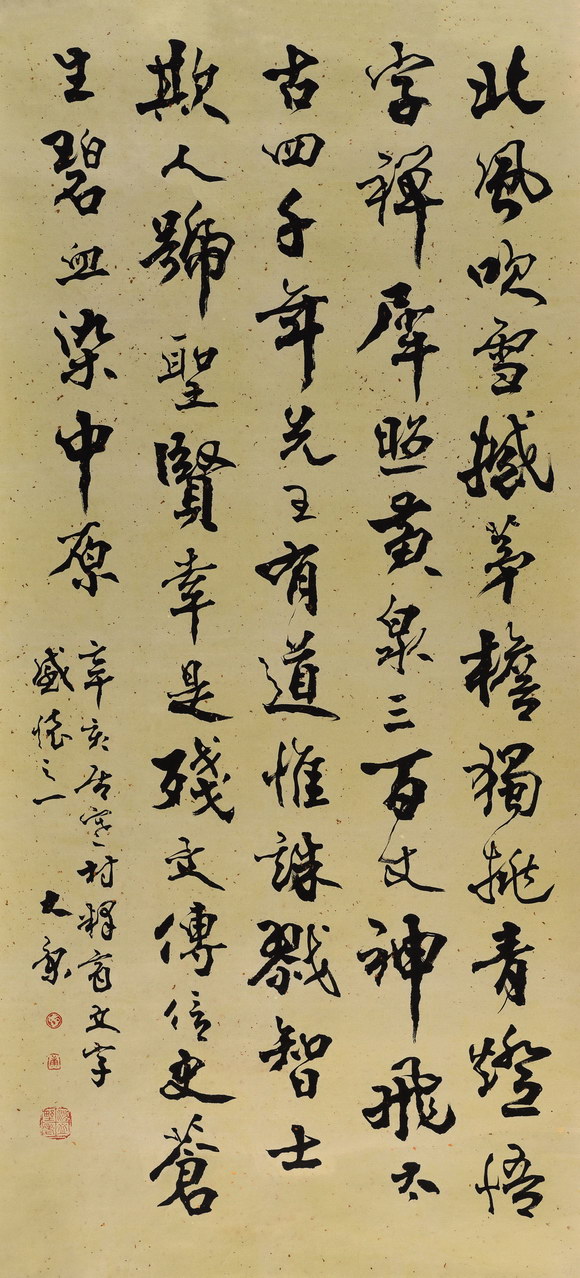 北風吹雪撼茅檐獨挑青燈悟
字禪犀照黃泉三百丈神飛太
古四千年先王有道惟誅戮智士
欺人號聖賢幸是殘文傳信史蒼
生碧血染中原
辛亥居村釋商文字
感懷之一